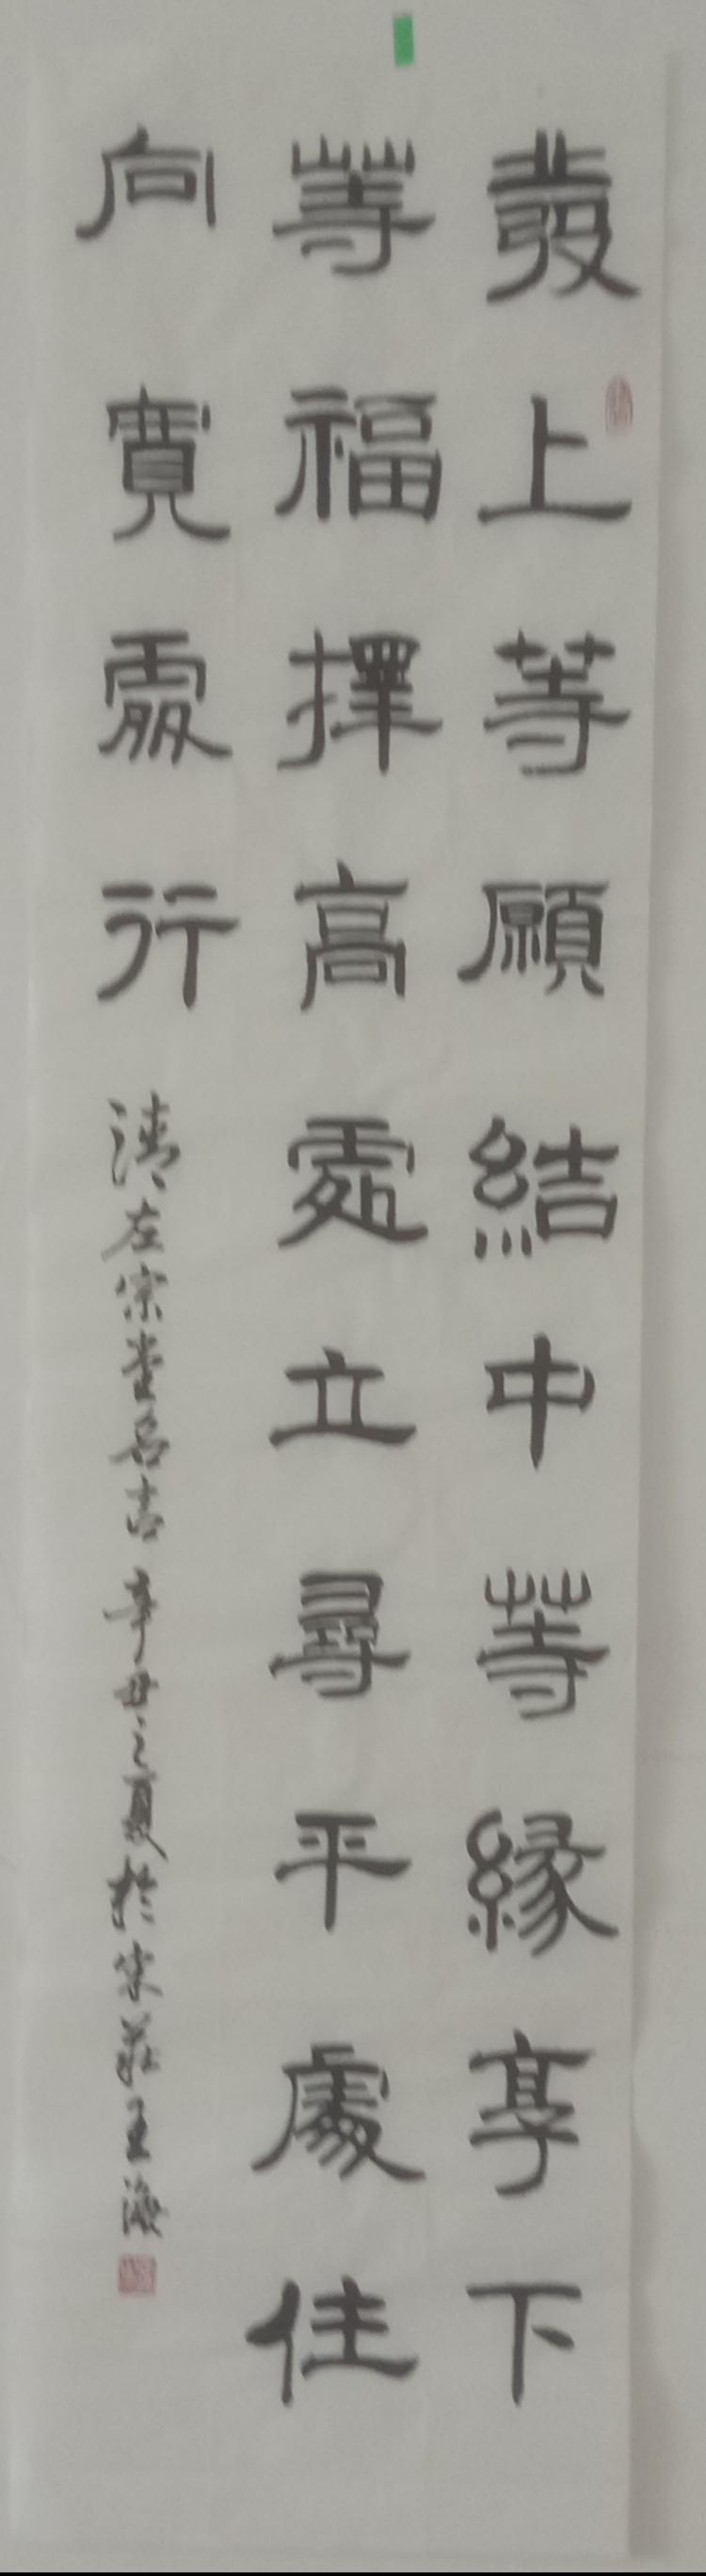 發上等願結中等緣享下
等福擇高處立尋平處住
向寬處行
清左宗棠名言辛丑之夏於宋莊王海